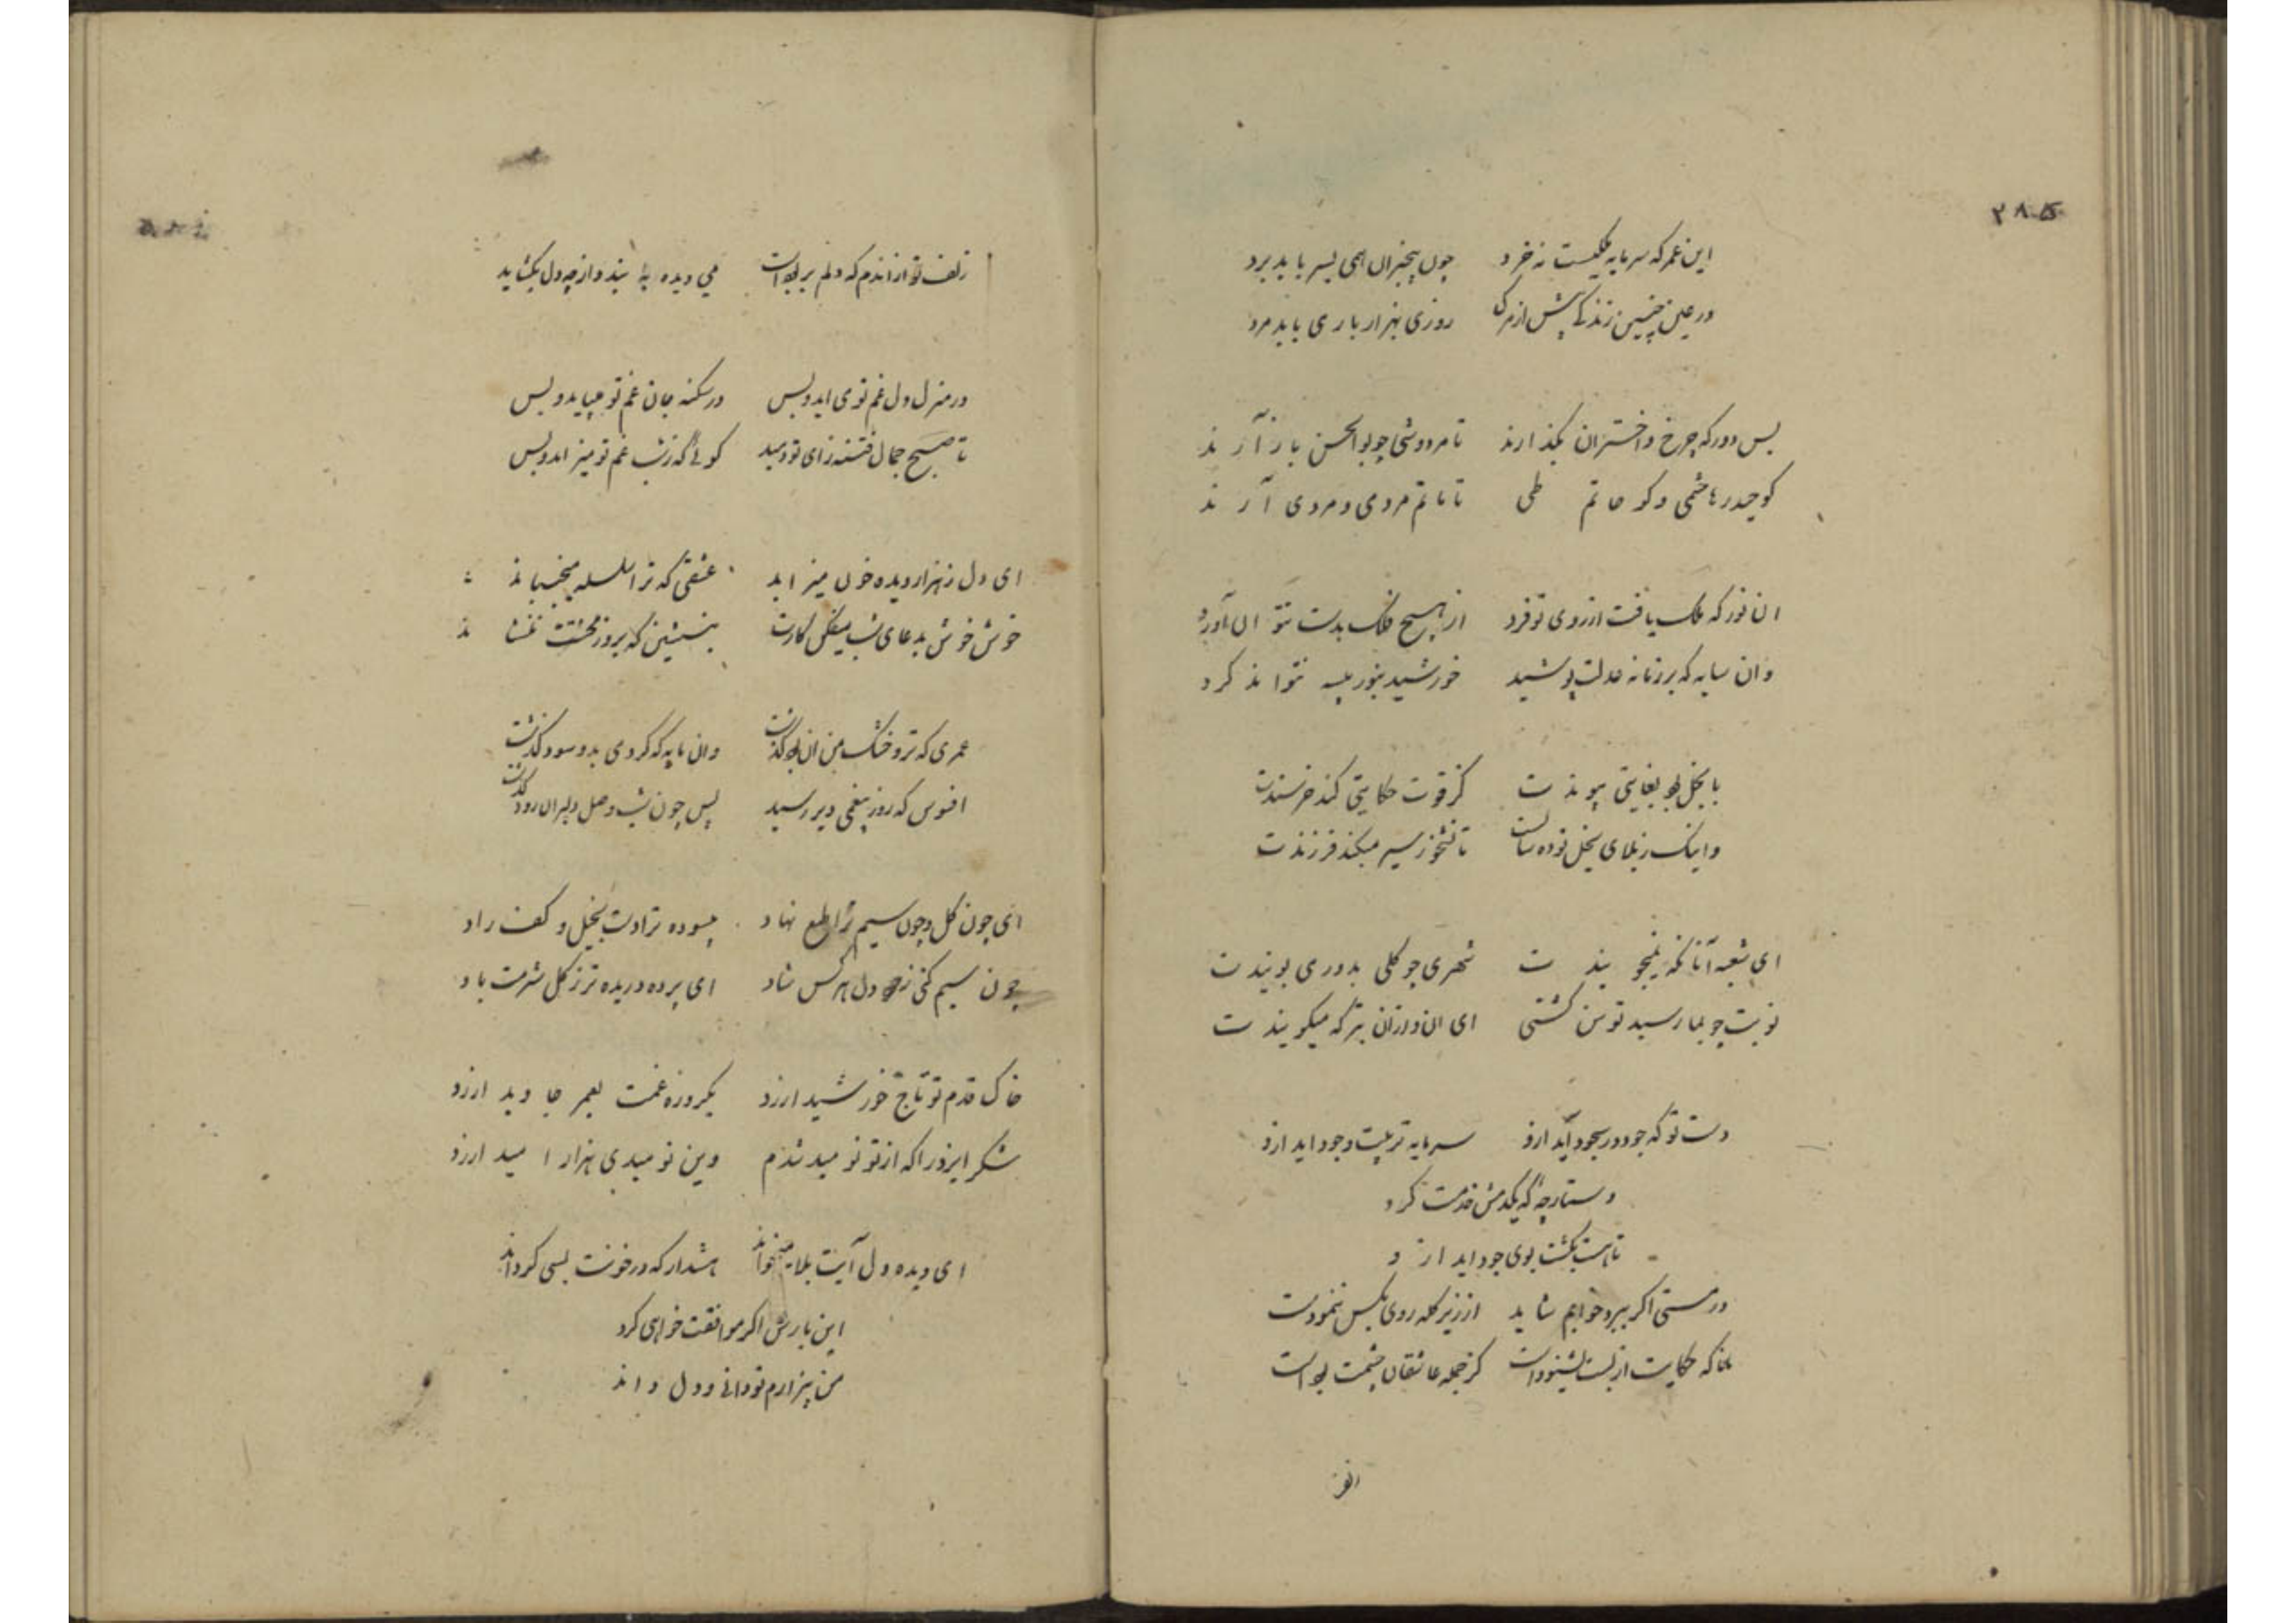 ۳۸۵
این عمر که سرمایه ملکیست نه خرد چون بیخبران همی بسر باید برد
در عین چنین زندگی پیش از مرگ روزی هزار باری باید مرد
بس دور که چرخ و اختران بگذارند تا مردوشی چو بوالحسن باز آرند
کو حیدر هاشمی و کو حاتم طی تا ماتم مردی و مردی آرند
ان نور که ملک یافت از روی تو فرد از هیچ فلک بدست نتوان آورد
وان سایه که بر زمانه عدلت پوشید خورشید بنور بیسه نتواند کرد
با بخل بود بغایتی پیوندت کز قوت حکایتی کند خرسندت
واینک ز بلای بخل تو ده سالست تا نشخور سیر میکند فرزندت
ای شعبه آنانکه نمیجویندت شهری چو گلی بدوری بویندت
نوبت چو بما رسید توسن گشتی ای ان و ازان بتر که میگویندت
دست تو که جود در سجود آید ازو سرمایه تربیت وجود اید ازو
دستارچه که یکدمش خدمت کرد
تا هست بکشت بوی جود اید ازو
در مستی اگر ببرد خوابم شاید از زیر کله روی بکس ننمودست
بلکه حکایت از لبت بشنودست کز جمله عاشقان چشمت بودست
زلف
زلف تو از اندم که دلم بربودست می دیده به بندد و از چه دل بگشاید
در منزل دل غم تو می اید و بس در سکنه جان غم تو میپاید و بس
تا صبح جمال فتنه زای تو دمید گوئی که ز شب غم تو میزاید و بس
ای دل ز هزار دیده خون میزاید عشقی که ترا سلسله میجنباند
خوش خوش بدعای شب میفکن کارت بنشین که بروز محنتت ننشاند
عمری که تر و خشک من ان بود گذشت وان مایه که کردمی بدو سود گذشت
افسوس که روز بیغمی دیر رسید پس چون شب وصل دلبران زود گذشت
ای چون گل و چون سیم ترا طبع نهاد بسوده ترا دست بخیل و کف راد
چون سیم کنی ز خود دل هر کس شاد ای پرده دریده تر ز گل شرمت باد
خاک قدم تو تاج خورشید ارزد یکروزه غمت بعمر جاوید ارزد
شکر ایزد را که از تو نومید شدم وین نومیدی هزار امید ارزد
ای دیده دل آیت بلا میخواند هشدار که در خونت بسی گرداند
این بارش اگر موافقت خواهی کرد
من بیزارم تو دانی و دل داند